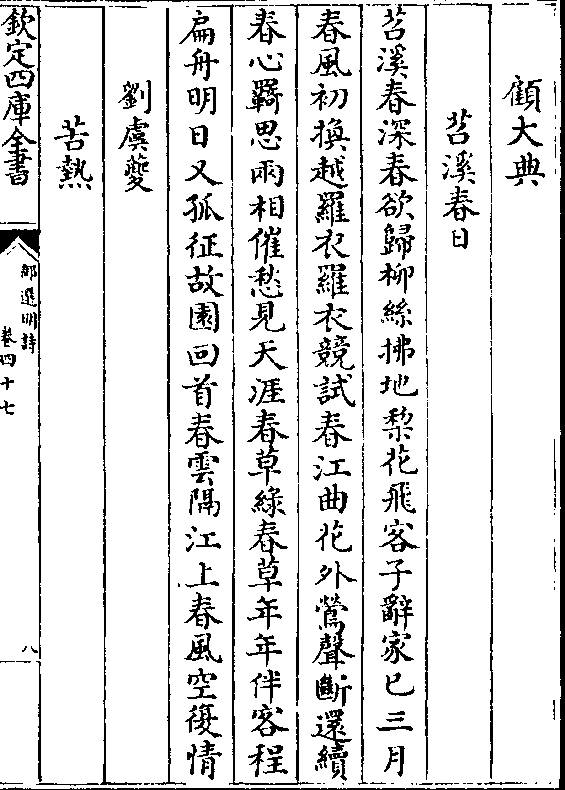 顧大典
苕溪春日
苕溪春深春欲歸柳絲拂地梨花飛客子辭家已三月
春風初換越羅衣羅衣競試春江曲花外鶯聲斷還續
春心羇思兩相催愁見天涯春草綠春草年年伴客程
扁舟明日又孤征故園回首春雲隔江上春風空復情
劉虞夔
苦熱
欽定四庫全書
御選明詩
卷四十七
八